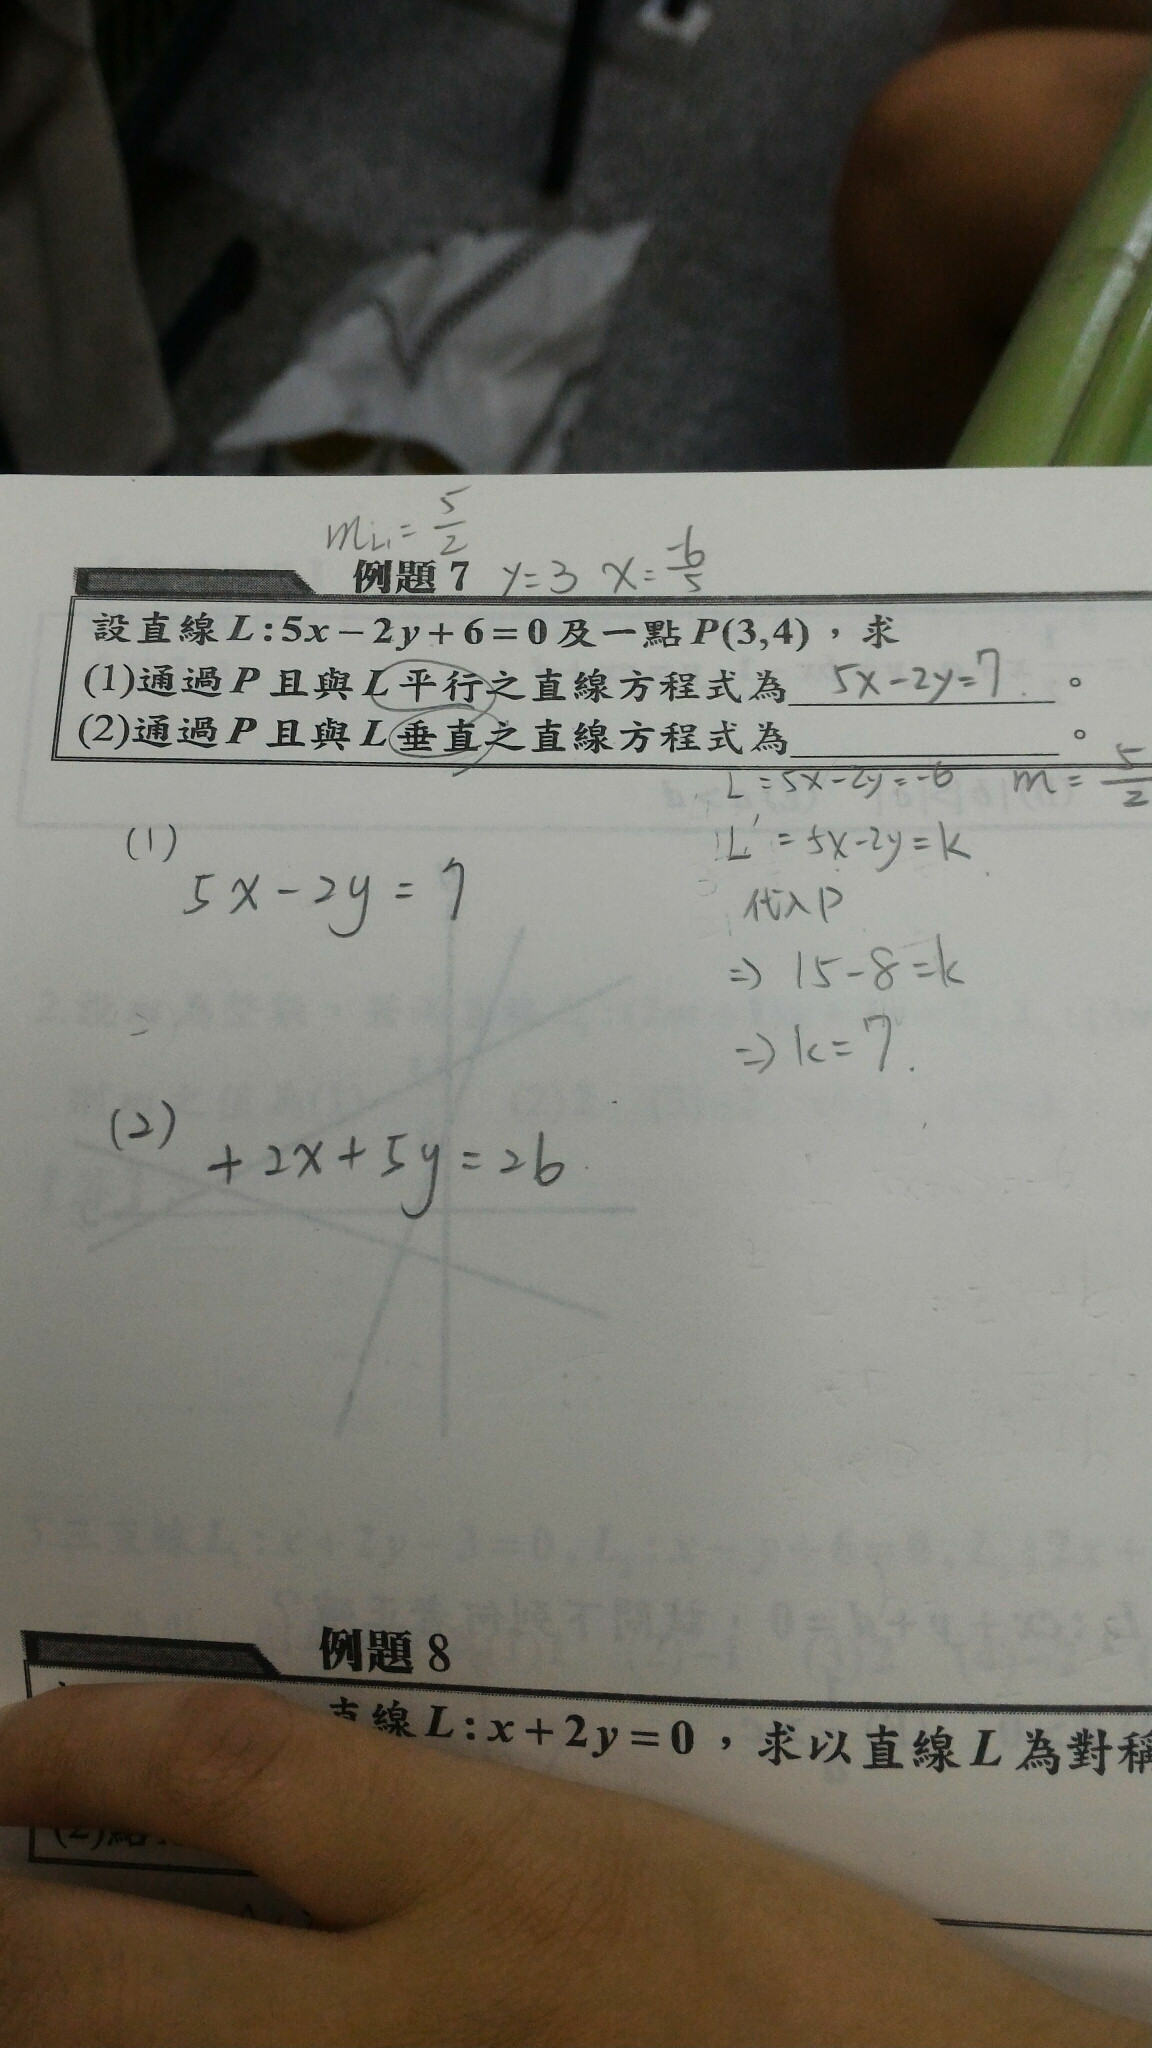 mL₁ = 5/2
例題 7 y=3 x=-6/5
設直線 L:5x−2y+6=0 及一點 P(3,4),求
(1)通過 P 且與 L 平行之直線方程式為 5x−2y=7 。
(2)通過 P 且與 L 垂直之直線方程式為 。
L = 5x−2y=−6 m= 5/2
(1)
L' = 5x−2y=k
5x−2y=7
代入P
⇒ 15−8=k
⇒ k=7.
(2) +2x+5y=26
例題 8
直線 L:x+2y=0,求以直線 L 為對稱
(2)